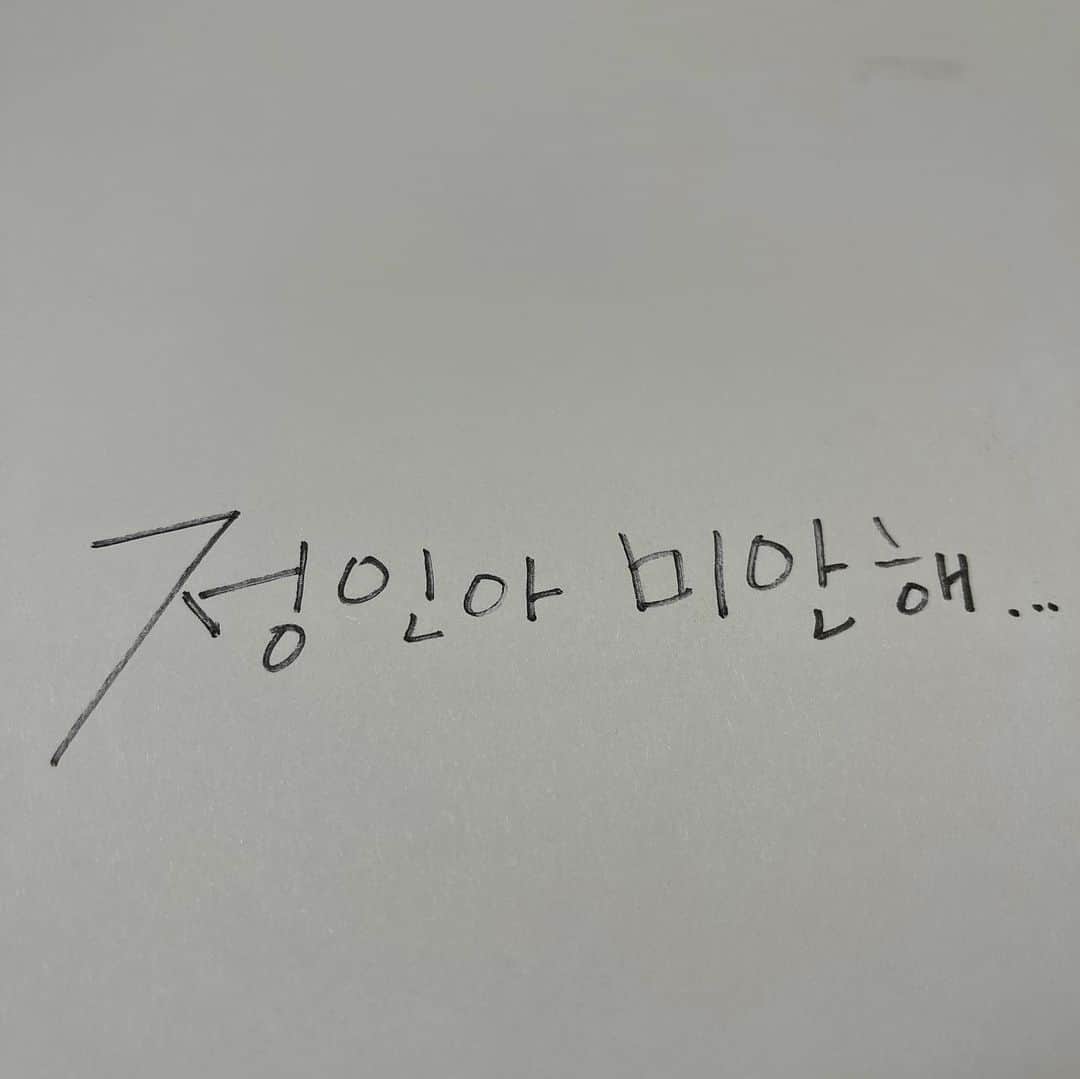 정인아 미안해...